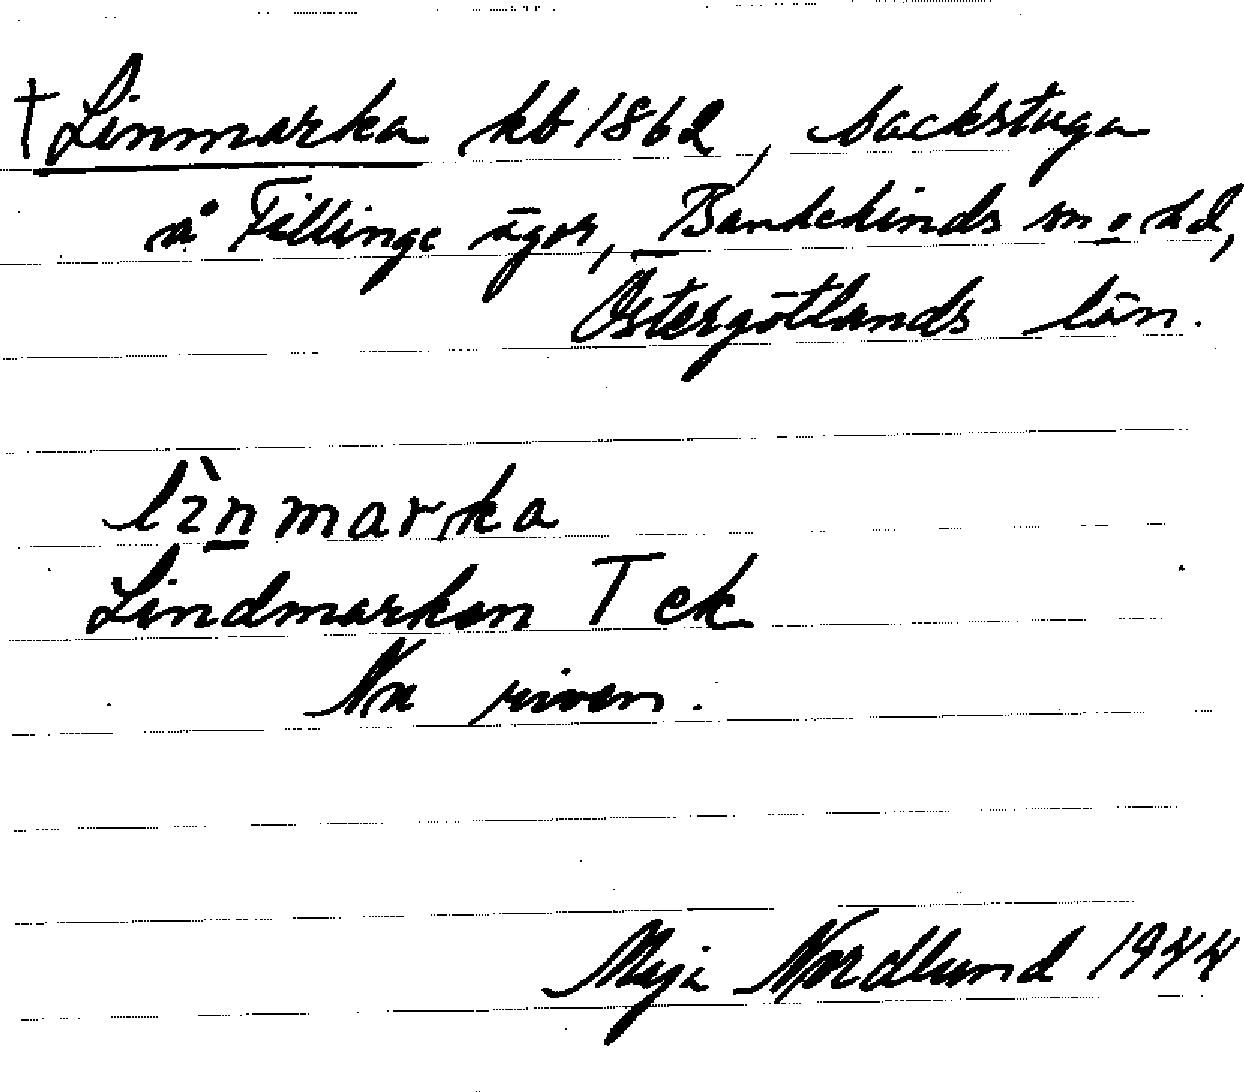 †Linmarka kb 1862, backstuga
å Fillinge ägor, Bankekinds sn o hd,
Östergötlands län.
lìnmarka
Lindmarkan T ek
Nu riven.
Maja Nordlund 1944